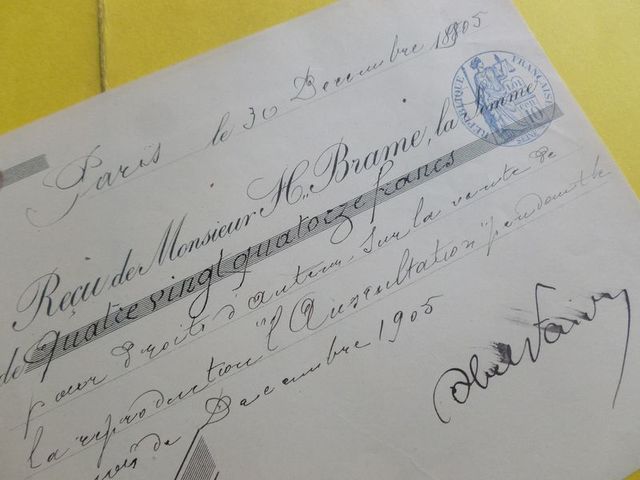 Paris le 30 Decembre 1905
Reçu de Monsieur H. Brame, la somme
de quatre vingt quatorze francs
pour droits d'auteur sur la vente de
la reproduction "l'Auscultation" pendant le
mois de Decembre 1905
REPUBLIQUE FRANÇAISE
LOI
10
SEINE
Abel Faivre